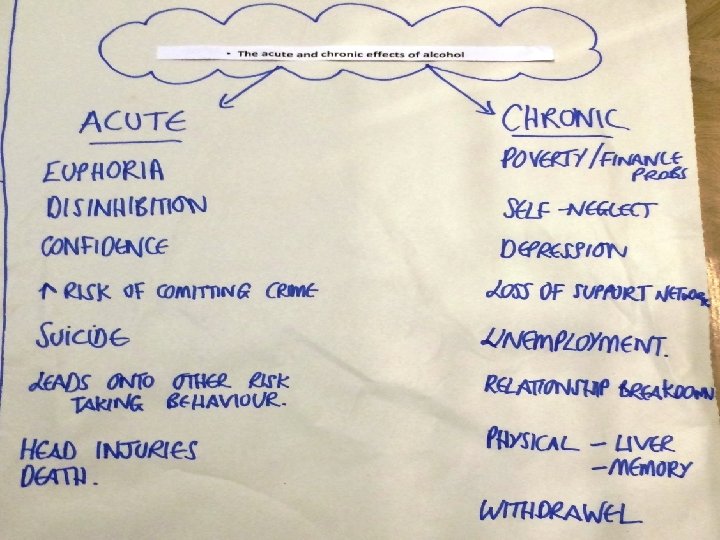 • The acute and chronic effects of alcohol
ACUTE
EUPHORIA
DISINHIBITION
CONFIDENCE
↑ RISK OF COMITTING CRIME
SUICIDE
LEADS ONTO OTHER RISK
TAKING BEHAVIOUR.
HEAD INJURIES
DEATH.
CHRONIC
POVERTY/FINANCE
PROBS
SELF-NEGLECT
DEPRESSION
LOSS OF SUPPORT NETWORK
UNEMPLOYMENT.
RELATIONSHIP BREAKDOWN
PHYSICAL - LIVER
- MEMORY
WITHDRAWEL